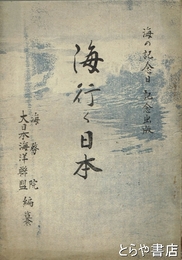 海の記念日記念出版
海行く日本
海務院
大日本海洋聯盟 編纂
とらや書店